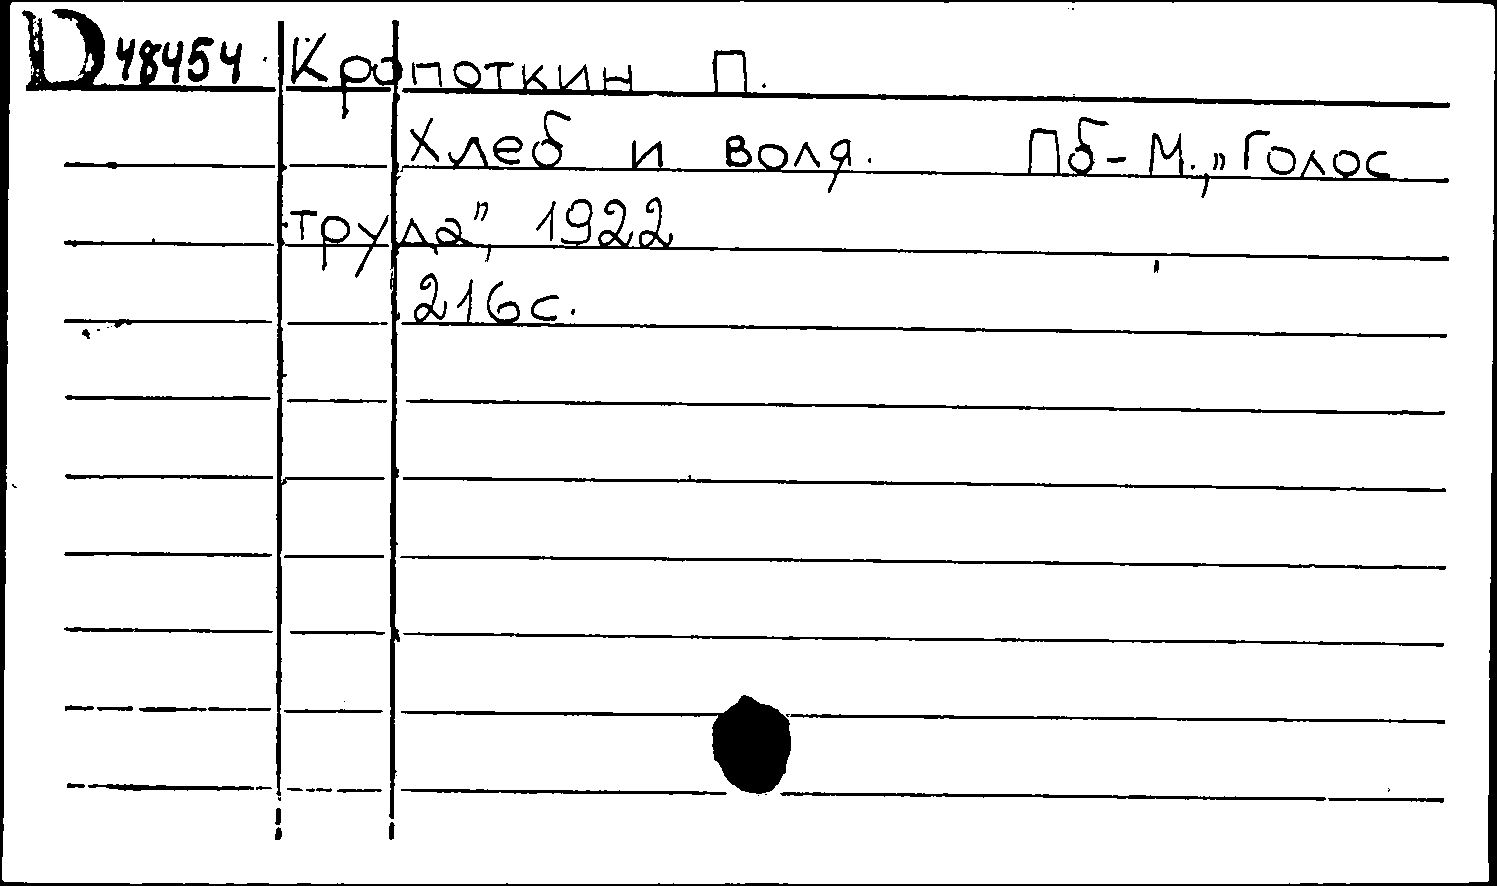 D 48454 Кропоткин П.
Хлеб и воля. Пб-М., „Голос
труда", 1922
216с.